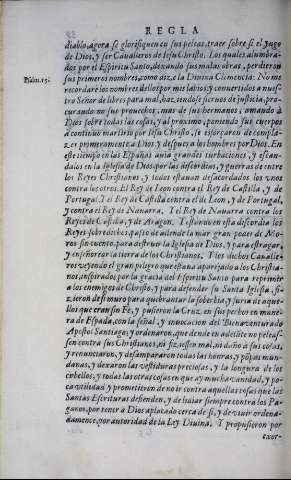 REGLA
diablo, agora se glorifiquen en sus pechos, traer sobre si el Iugo
de Dios, y ser Caualleros de Iesu Christo. Los quales alumbra-
dos por el Espiritu Santo, dexando sus malas obras, perdieron
sus primeros nombres, como dize la Diuina Clemencia: No me
Psalm. 15.
recordare los nombres dellos por mis labios; y conuertidos a nues-
tro Señor de libres para mal, haz, tendose sieruos de justicia, pro-
curando no sus prouechos, mas de sus hermanos, amando à
Dios sobre todas las cosas, y al proximo, poniendo sus cuerpos
à continuo martirio por Iesu Christo, se esforçaren de compla-
zer primeramente à Dios, y despues a los hombres por Dios. En
este tiempo en las Españas auia grandes turbaciones, y escan-
dalos en la Iglesia de Dios por las discordias, y guerras de entre
los Reyes Christianos, y todos estauan desacordados los vnos
contra los otros. El Rey de Leon contra el Rey de Castilla, y de
Portugal. Y el Rey de Castilla contra el de Leon, y de Portugal,
y contra el Rey de Nauarra. Y el Rey de Nauarra contra los
Reyes de Castilla, y de Aragon. Y estando en esta discordia los
Reyes sobredichos, passò de allende la mar gran poder de Mo-
ros sin cuento, para destruir la Iglesia de Dios, y para estragar,
y enseñorear la tierra de los Christianos. Y los dichos Caualle-
ros viendo el gran peligro que estaua aparejado a los Christia-
nos, inspirados por la gracia del Espiritu Santo para reprimir
a los enemigos de Christo, y para defender su Santa Iglesia, fi-
zieron de si muro para quebrantar la soberbia, y furia de aque-
llos que eran sin Fe, y pusieron la Cruz, en sus pechos en mane-
ra de Espada, con la señal, y inuocacion del Bienauenturado
Apostol Santiago; y ordenaron, que dende en adelãte no peleas-
sen contra sus Christianos, ni fiziessen mal, ni daño à sus cosas,
y renunciaron, y desampararon todas las honras, y põpas mun-
danas, y dexaron las vestiduras preciosas, y la longura de los
cabellos, y todas las otras cosas en que ay mucha vanidad, y po-
ca vtilidad y prometieron de no ir contra aquellas cosas que las
Santas Escrituras defienden, y de lidiar siempre contra los Pa-
ganos, por tener à Dios aplacado cerca de si, y de viuir ordena-
damente, por autoridad de la Ley Diuina. Y propusieron por
exor-